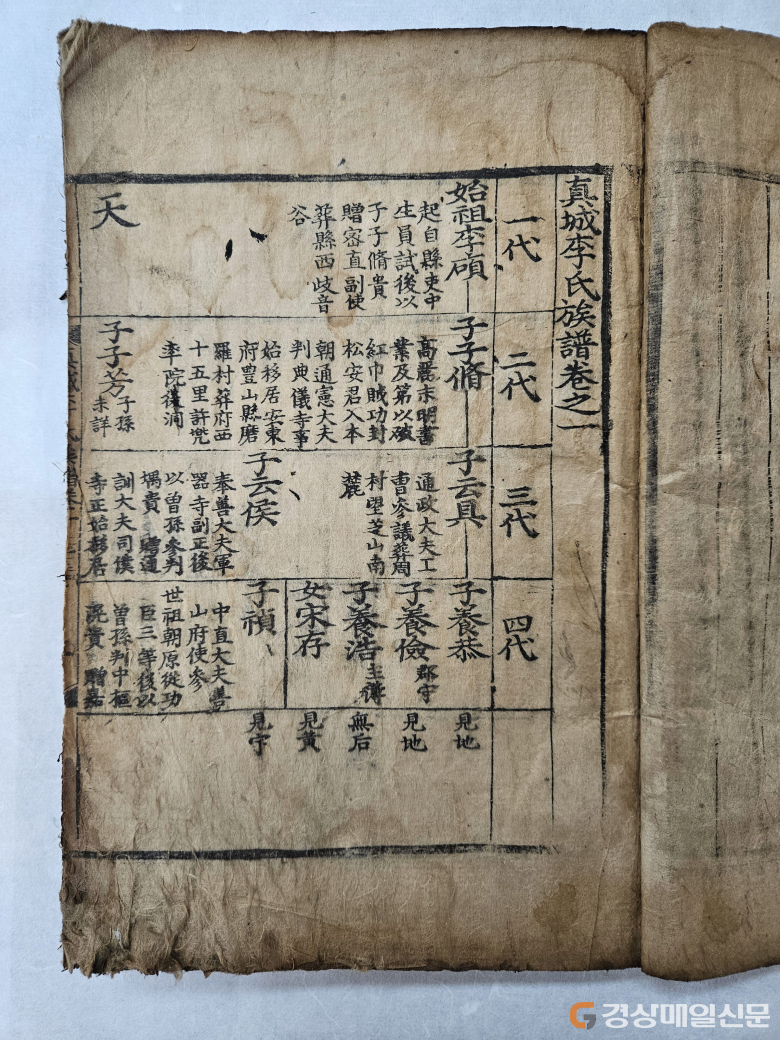 真城李氏族譜卷之一
一代
始祖李碩
起自縣吏中
生員試後以
子子脩貴
贈密直副使
葬縣西岐音
谷
天
二代
子子脩
高麗末明書
業及第以破
紅巾賊功封
松安君入本
朝通憲大夫
判典儀寺事
始移居安東
府豊山縣磨
羅村葬府西
十五里許兜
率院後洞
子子芳
子孫
未詳
三代
子云具
通政大夫工
曹參議葬周
村望芝山南
麓
子云侯
奉善大夫軍
器寺副正後
以曽孫參判
堣貴 贈通
訓大夫司僕
寺正始移居
四代
子養恭
子養儉
郡守
子養浩
主簿
女宋存
子禎
中直大夫善
山府使參
世祖朝原從功
臣三等後以
曽孫判中樞
滉貴 贈嘉
見地
見地
無后
見黃
見宇
경상매일신문